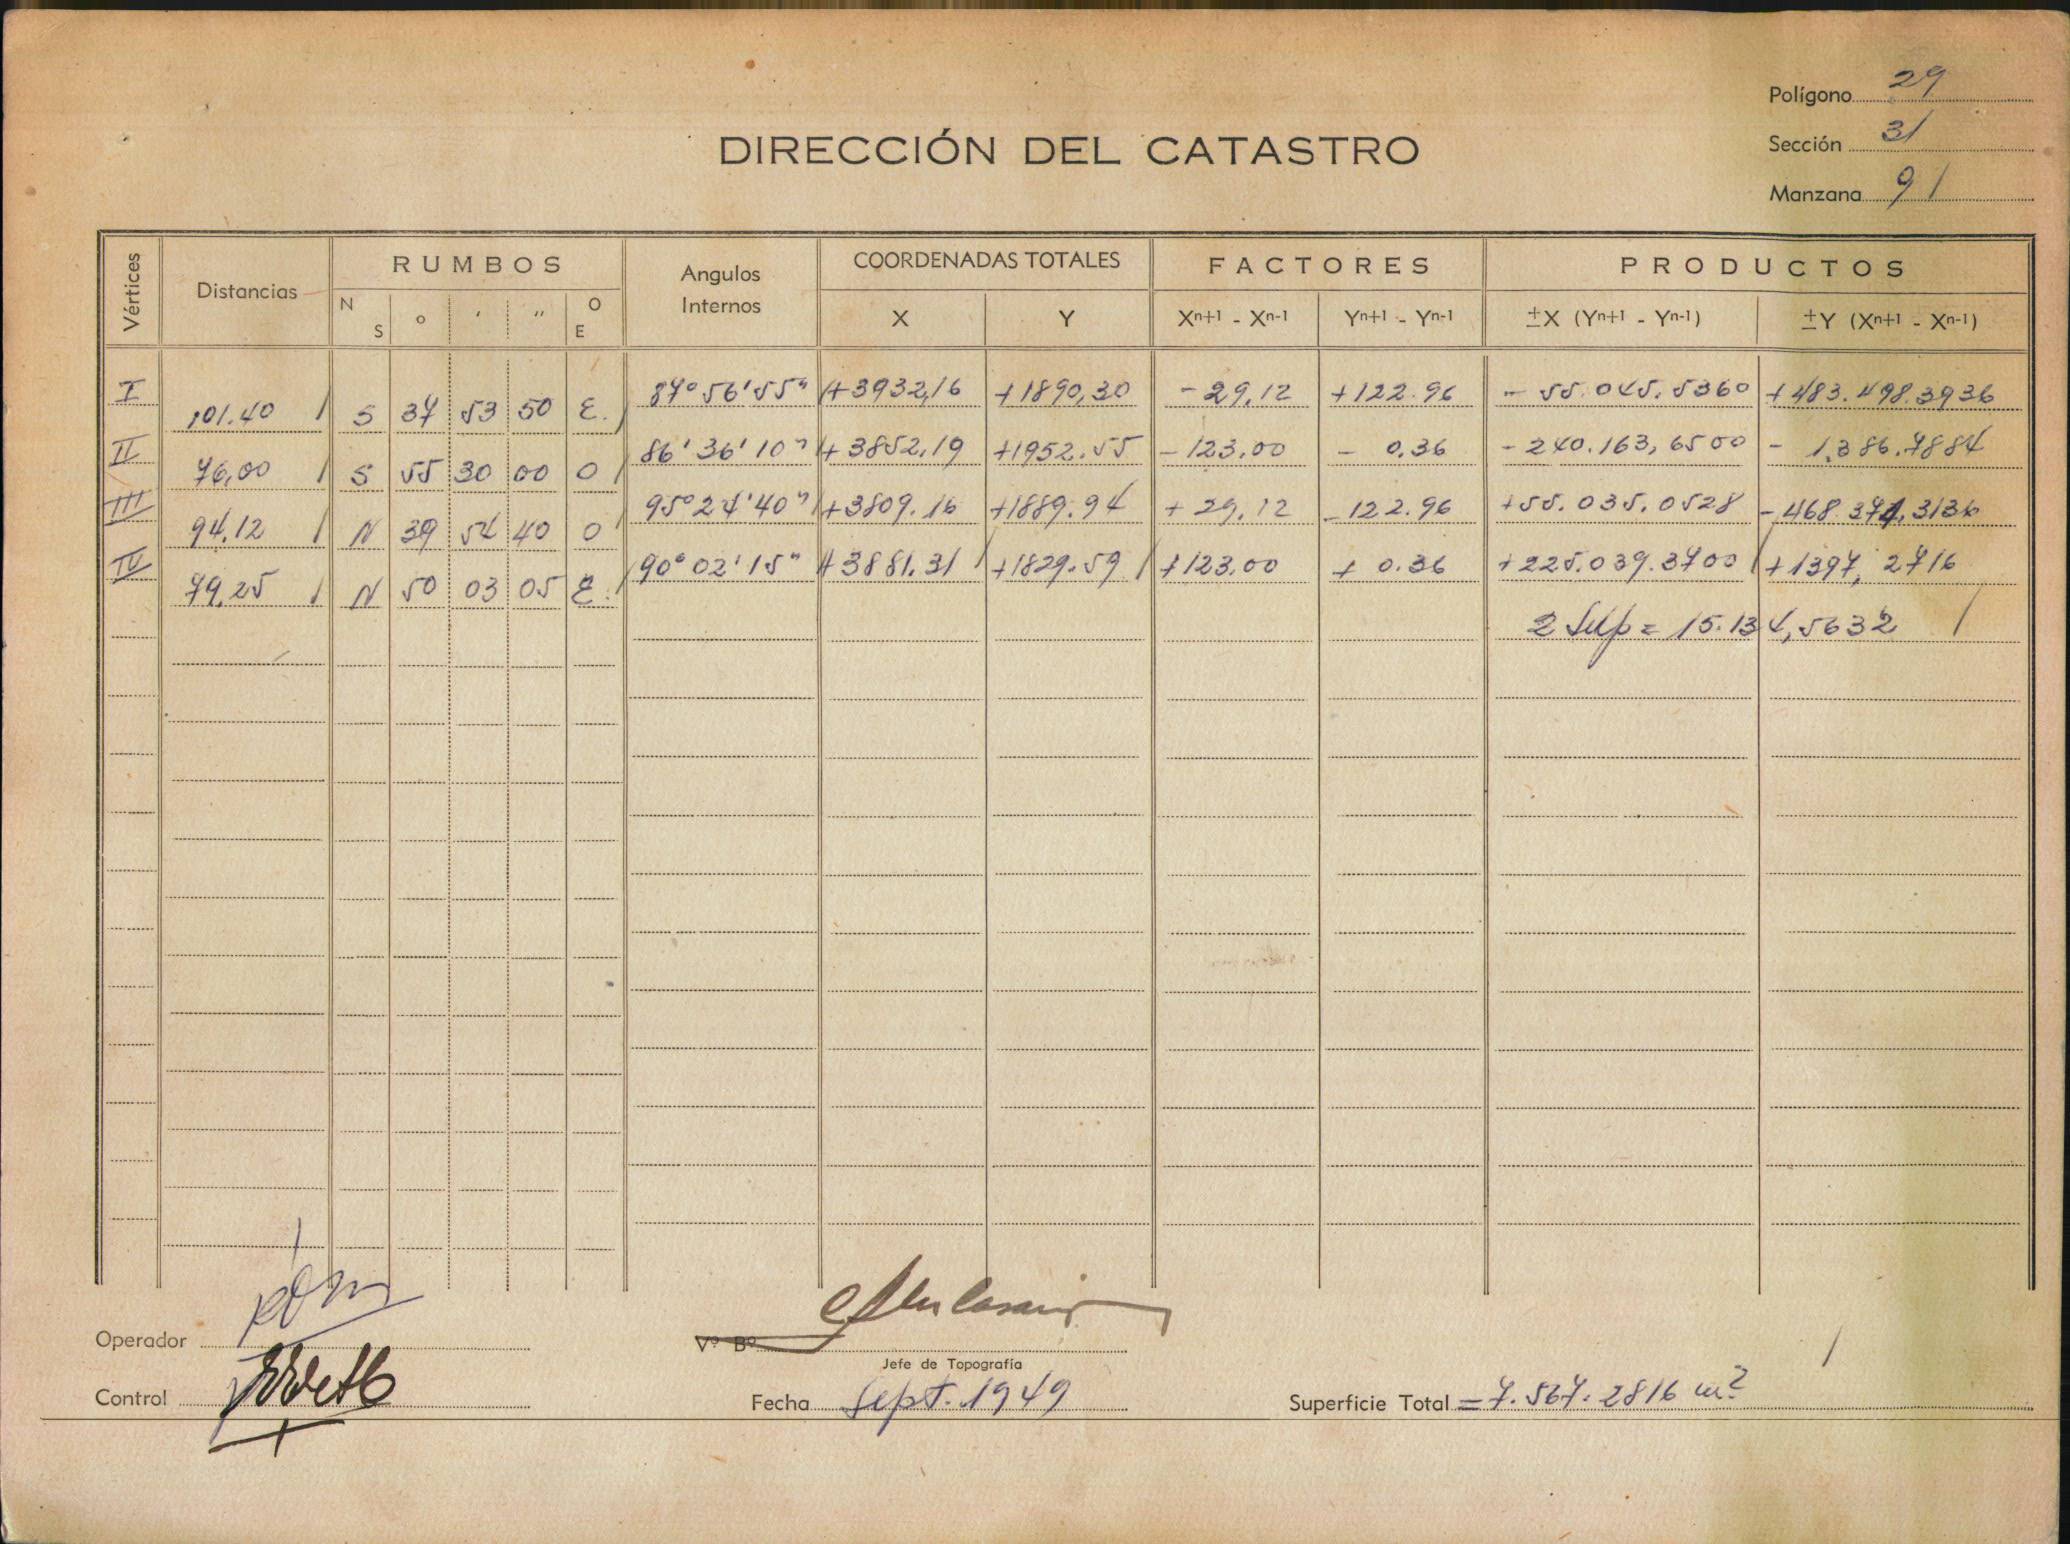 Polígono 29
Sección 31
Manzana 91
DIRECCIÓN DEL CATASTRO
Vértices Distancias RUMBOS Angulos Internos COORDENADAS TOTALES FACTORES PRODUCTOS
N S ° ' '' O E X Y Xn+1 - Xn-1 Yn+1 - Yn-1 ±X (Yn+1 - Yn-1) ±Y (Xn+1 - Xn-1)
I 87° 56' 55" +3932,16 +1890,30 -29,12 +122.96 - 55.045.5360 +483.498.3936
101.40 S 37 53 50 E.
II 86' 36' 10" +3852,19 +1952.55 -123.00 - 0.36 -240.163,6500 - 1.386.7884
76,00 S 55 30 00 O
III 95° 24' 40" +3809.16 +1889.94 +29,12 -122.96 +55.035.0528 -468.374.3136
94,12 N 39 54 40 O
IV 90° 02' 15" +3881.31 +1829.59 +123.00 + 0.36 +225.039.5700 +1397,2716
79,25 N 50 03 05 E.
2 Sup = 15.134,5632
Operador
Vº Bº
Jefe de Topografía
Control
Fecha Sept. 1949
Superficie Total = 7.567.2816 m²